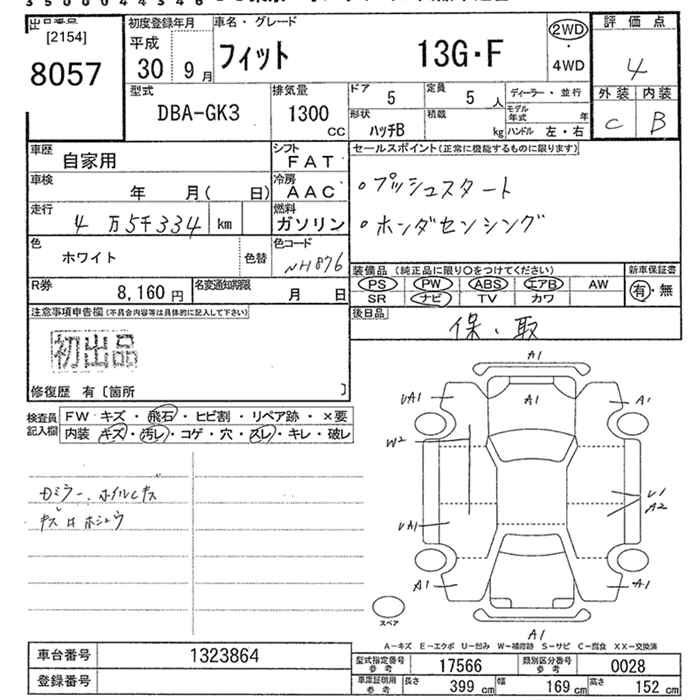 出品番号
[2154]
8057
初度登録年月
平成
30 9月
車名・グレード
フィット 13G・F
2WD
・
4WD
評価点
4
外装 内装
C B
型式
DBA-GK3
排気量
1300
CC
ドア
5
定員
5 人
形状
ハッチB
積載
kg
ディーラー・並行
モデル年式 年
ハンドル 左・右
車歴
自家用
シフト
FAT
車検
年 月( 日)
冷房
AAC
走行
4万5千334 km
燃料
ガソリン
色
ホワイト
色替
色コード
NH876
R券
8,160 円
名変通知期限
月 日
セールスポイント(正常に機能するものに限ります)
○プッシュスタート
○ホンダセンシング
装備品 (純正品に限り○をつけてください)
PS PW ABS エアB AW
SR ナビ TV カワ
新車保証書
有・無
後日品
保、取
注意事項申告欄(不具合内容等は具体的に記入して下さい)
初出品
修復歴 有〔箇所 〕
検査員記入欄
FW キズ・飛石・ヒビ割・リペア跡・×要
内装 キズ・汚レ・コゲ・穴・スレ・キレ・破レ
ガミラー、ホイルCキズ
キズはホシュウ
A1
UA1
A1
A1
W2
U1
A2
UA1
A1
A1
スペア
A1
A−キズ E−エクボ U−凹み W−補修跡 S−サビ C−腐食 XX−交換済
車台番号
1323864
登録番号
型式指定番号
参考
17566
類別区分番号
参考
0028
車庫証明用
参考
長さ
399 cm
幅
169 cm
高さ
152 cm